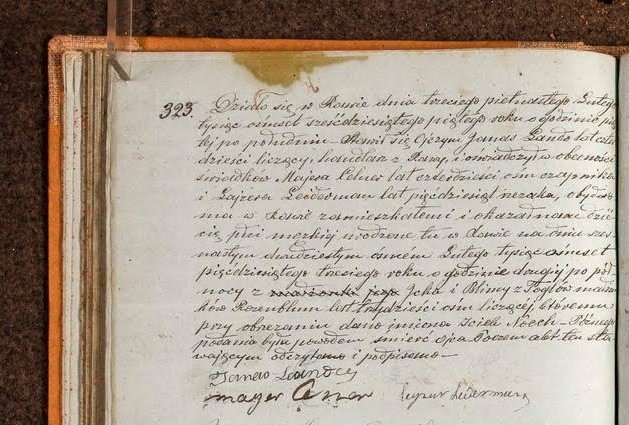 323. Działo się w Rawie dnia trzeciego piętnastego Lutego
tysiąc ośmset sześćdziesiątego piątego roku o godzinie pią
tej po południu. Stawił się Ojczym Janas Lando lat czter
dzieści liczący, handlarz z Rawy, i oświadczył w obecności
świadków Majera Celner lat czterdzieści ośm czapnika
i Lajzera Lederman lat pięćdziesiąt rzezaka, obydwó
ma w Rawie zamieszkałemi i okazał nam dzie
cię płci męzkiej urodzone tu w Rawie na dniu szes
nastym dwudziestym ósmym Lutego tysiąc ośmset
pięćdziesiątego trzeciego roku o godzinie drugiej po pół
nocy z małżonki jego Icka i Blimy z małżon
ków Rozenblum lat trzydzieści ośm liczącej, któremu
przy obrzezaniu dano imiona Noech. Późnego
podania była powodem śmierć ojca Poczem akt ten sta
wającym odczytano i podpisano